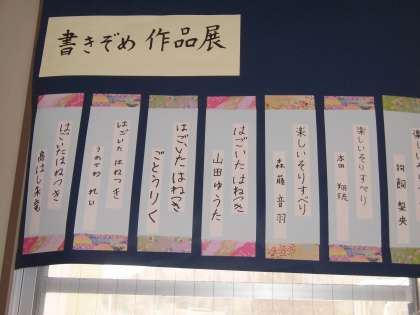 書きぞめ 作品展
楽しいそりすべり
楽しいそりすべり
本田
楽しいそりすべり
森藤 音羽
はごいた はねつき
山田 ゆうた
はごいた はねつき
ごとうりく
はごいた はねつき
うめざわ れい
はごいた はねつき